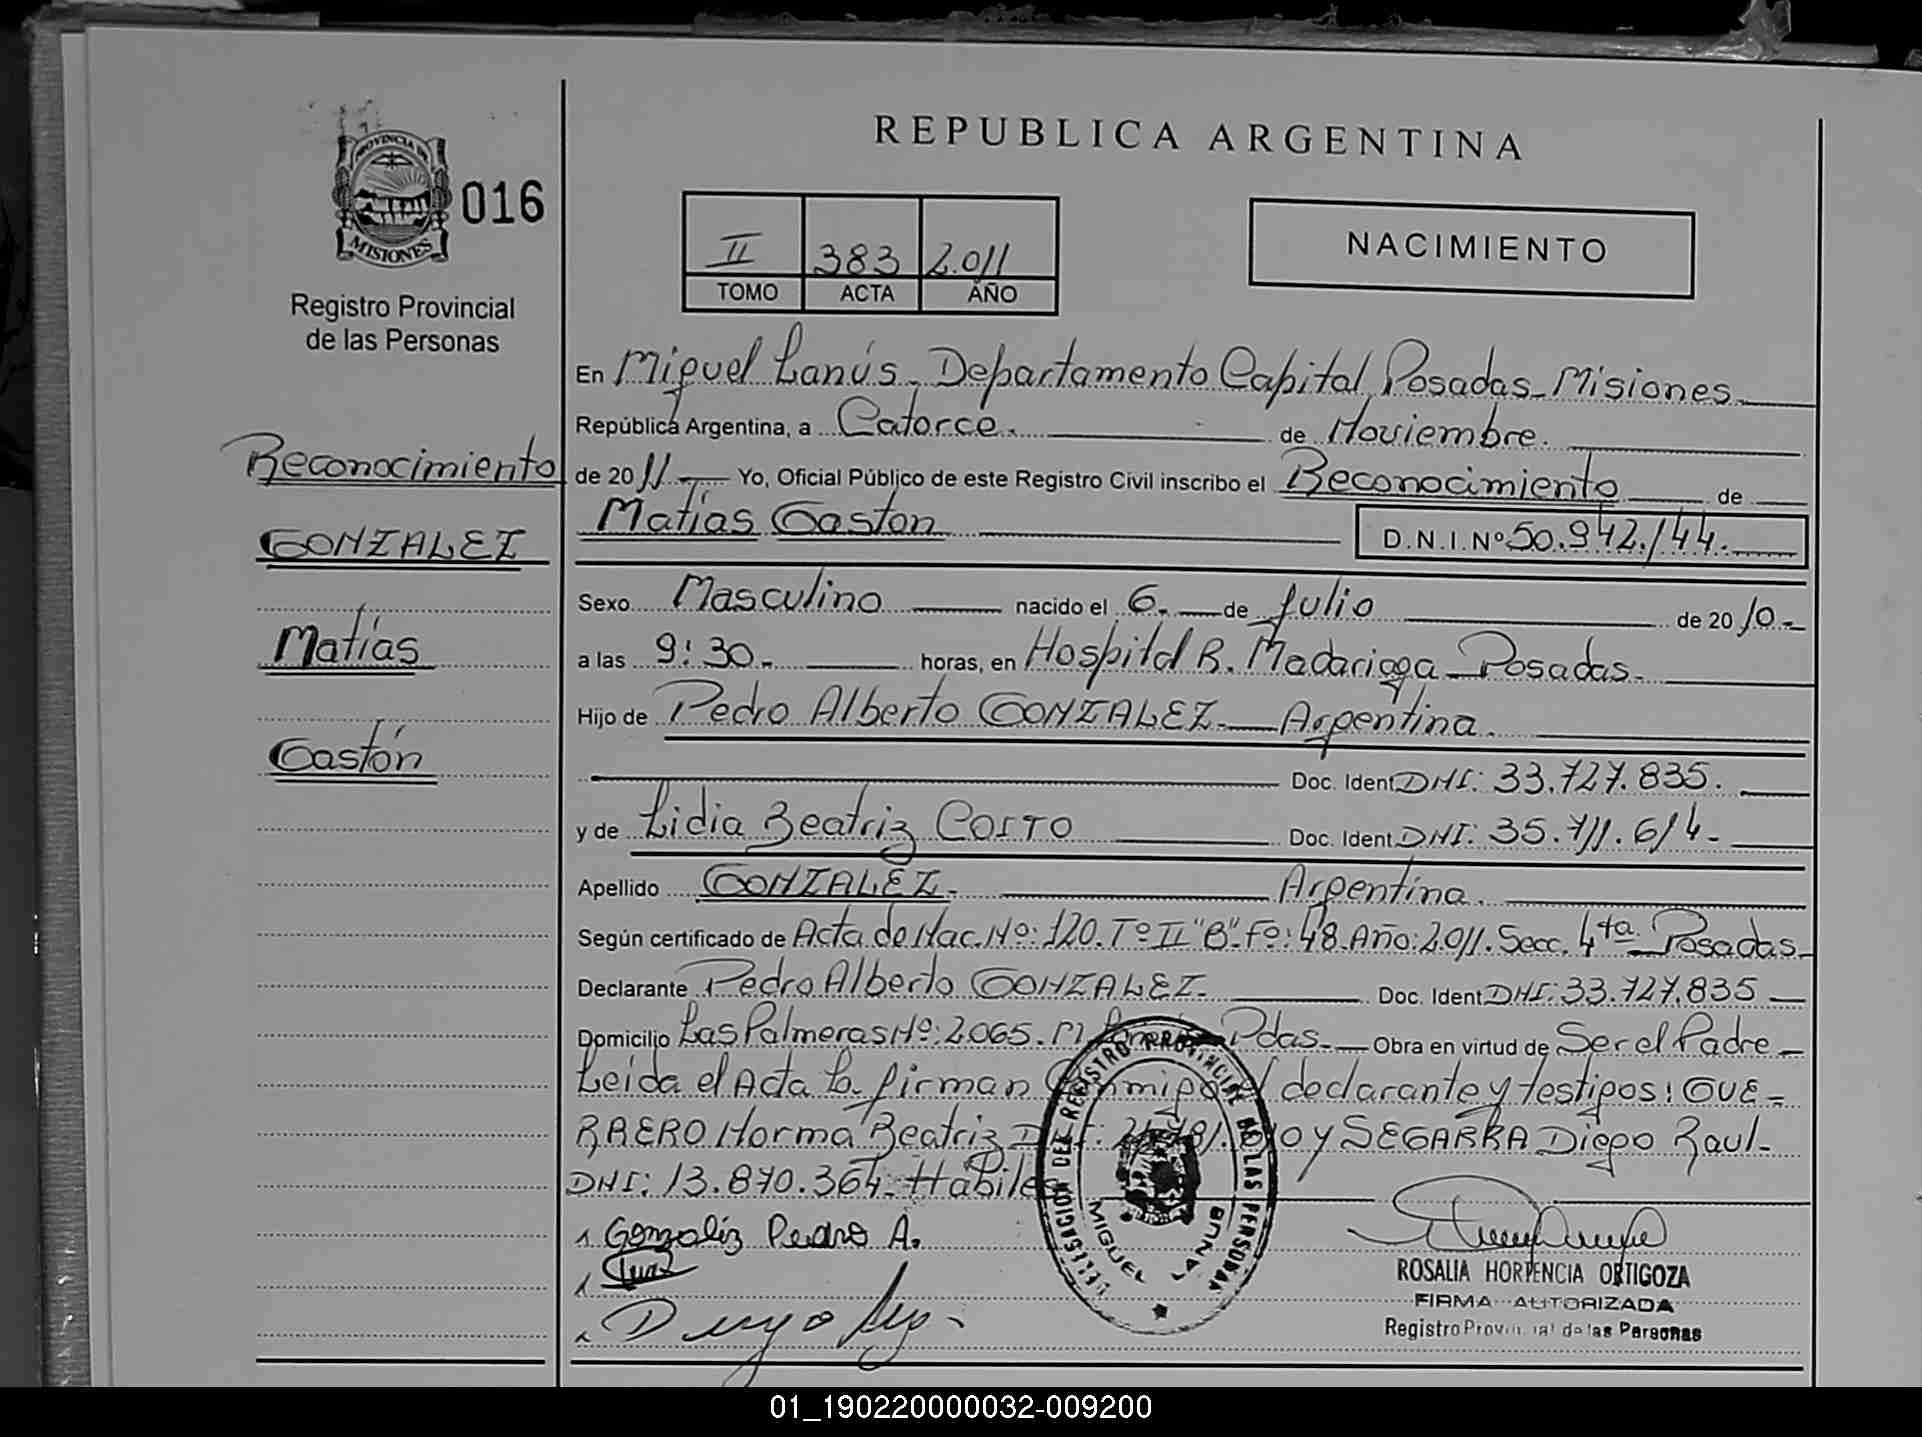 REPUBLICA ARGENTINA
PROVINCIA DE
MISIONES
016
Registro Provincial
de las Personas
II 383 2.011
TOMO ACTA AÑO
NACIMIENTO
Reconocimiento
GONZALEZ
Matías
Gastón
En Miguel Lanús. Departamento Capital Posadas - Misiones
República Argentina, a Catorce. de Noviembre.
de 2011 Yo, Oficial Público de este Registro Civil inscribo el Reconocimiento de
Matías Gaston D.N.I.Nº 50.942.144.
Sexo Masculino nacido el 6. de Julio de 2010.-
a las 9:30.- horas, en Hospital R. Madariaga - Posadas.
Hijo de Pedro Alberto GONZALEZ. Argentina.
Doc. Ident. DNI: 33.727.835.
y de Lidia Beatriz Doc. Ident. DNI: 35.711.614.
Apellido GONZALEZ. Argentina.
Según certificado de Acta de Nac. Nº: 120. Tº II "B". Fº: 48. Año: 2.011. Secc. 4ta Posadas
Declarante Pedro Alberto GONZALEZ. Doc. Ident. DNI: 33.727.835
Domicilio Las Palmeras Nº: 2065. M. Pdas. Obra en virtud de Ser el Padre
Leida el Acta la firman declarante y testigos: GUE-
RRERO Norma Beatriz Y SEGARRA Diego Raul-
DNI: 13.870.364. Habiles
Gonzaliz Pedro A.
DELEGACION DEL REGISTRO PROVINCIAL DE LAS PERSONAS
MIGUEL LANUS
ROSALIA HORTENCIA ORTIGOZA
FIRMA AUTORIZADA
Registro Provincial de las Personas
01_190220000032-009200